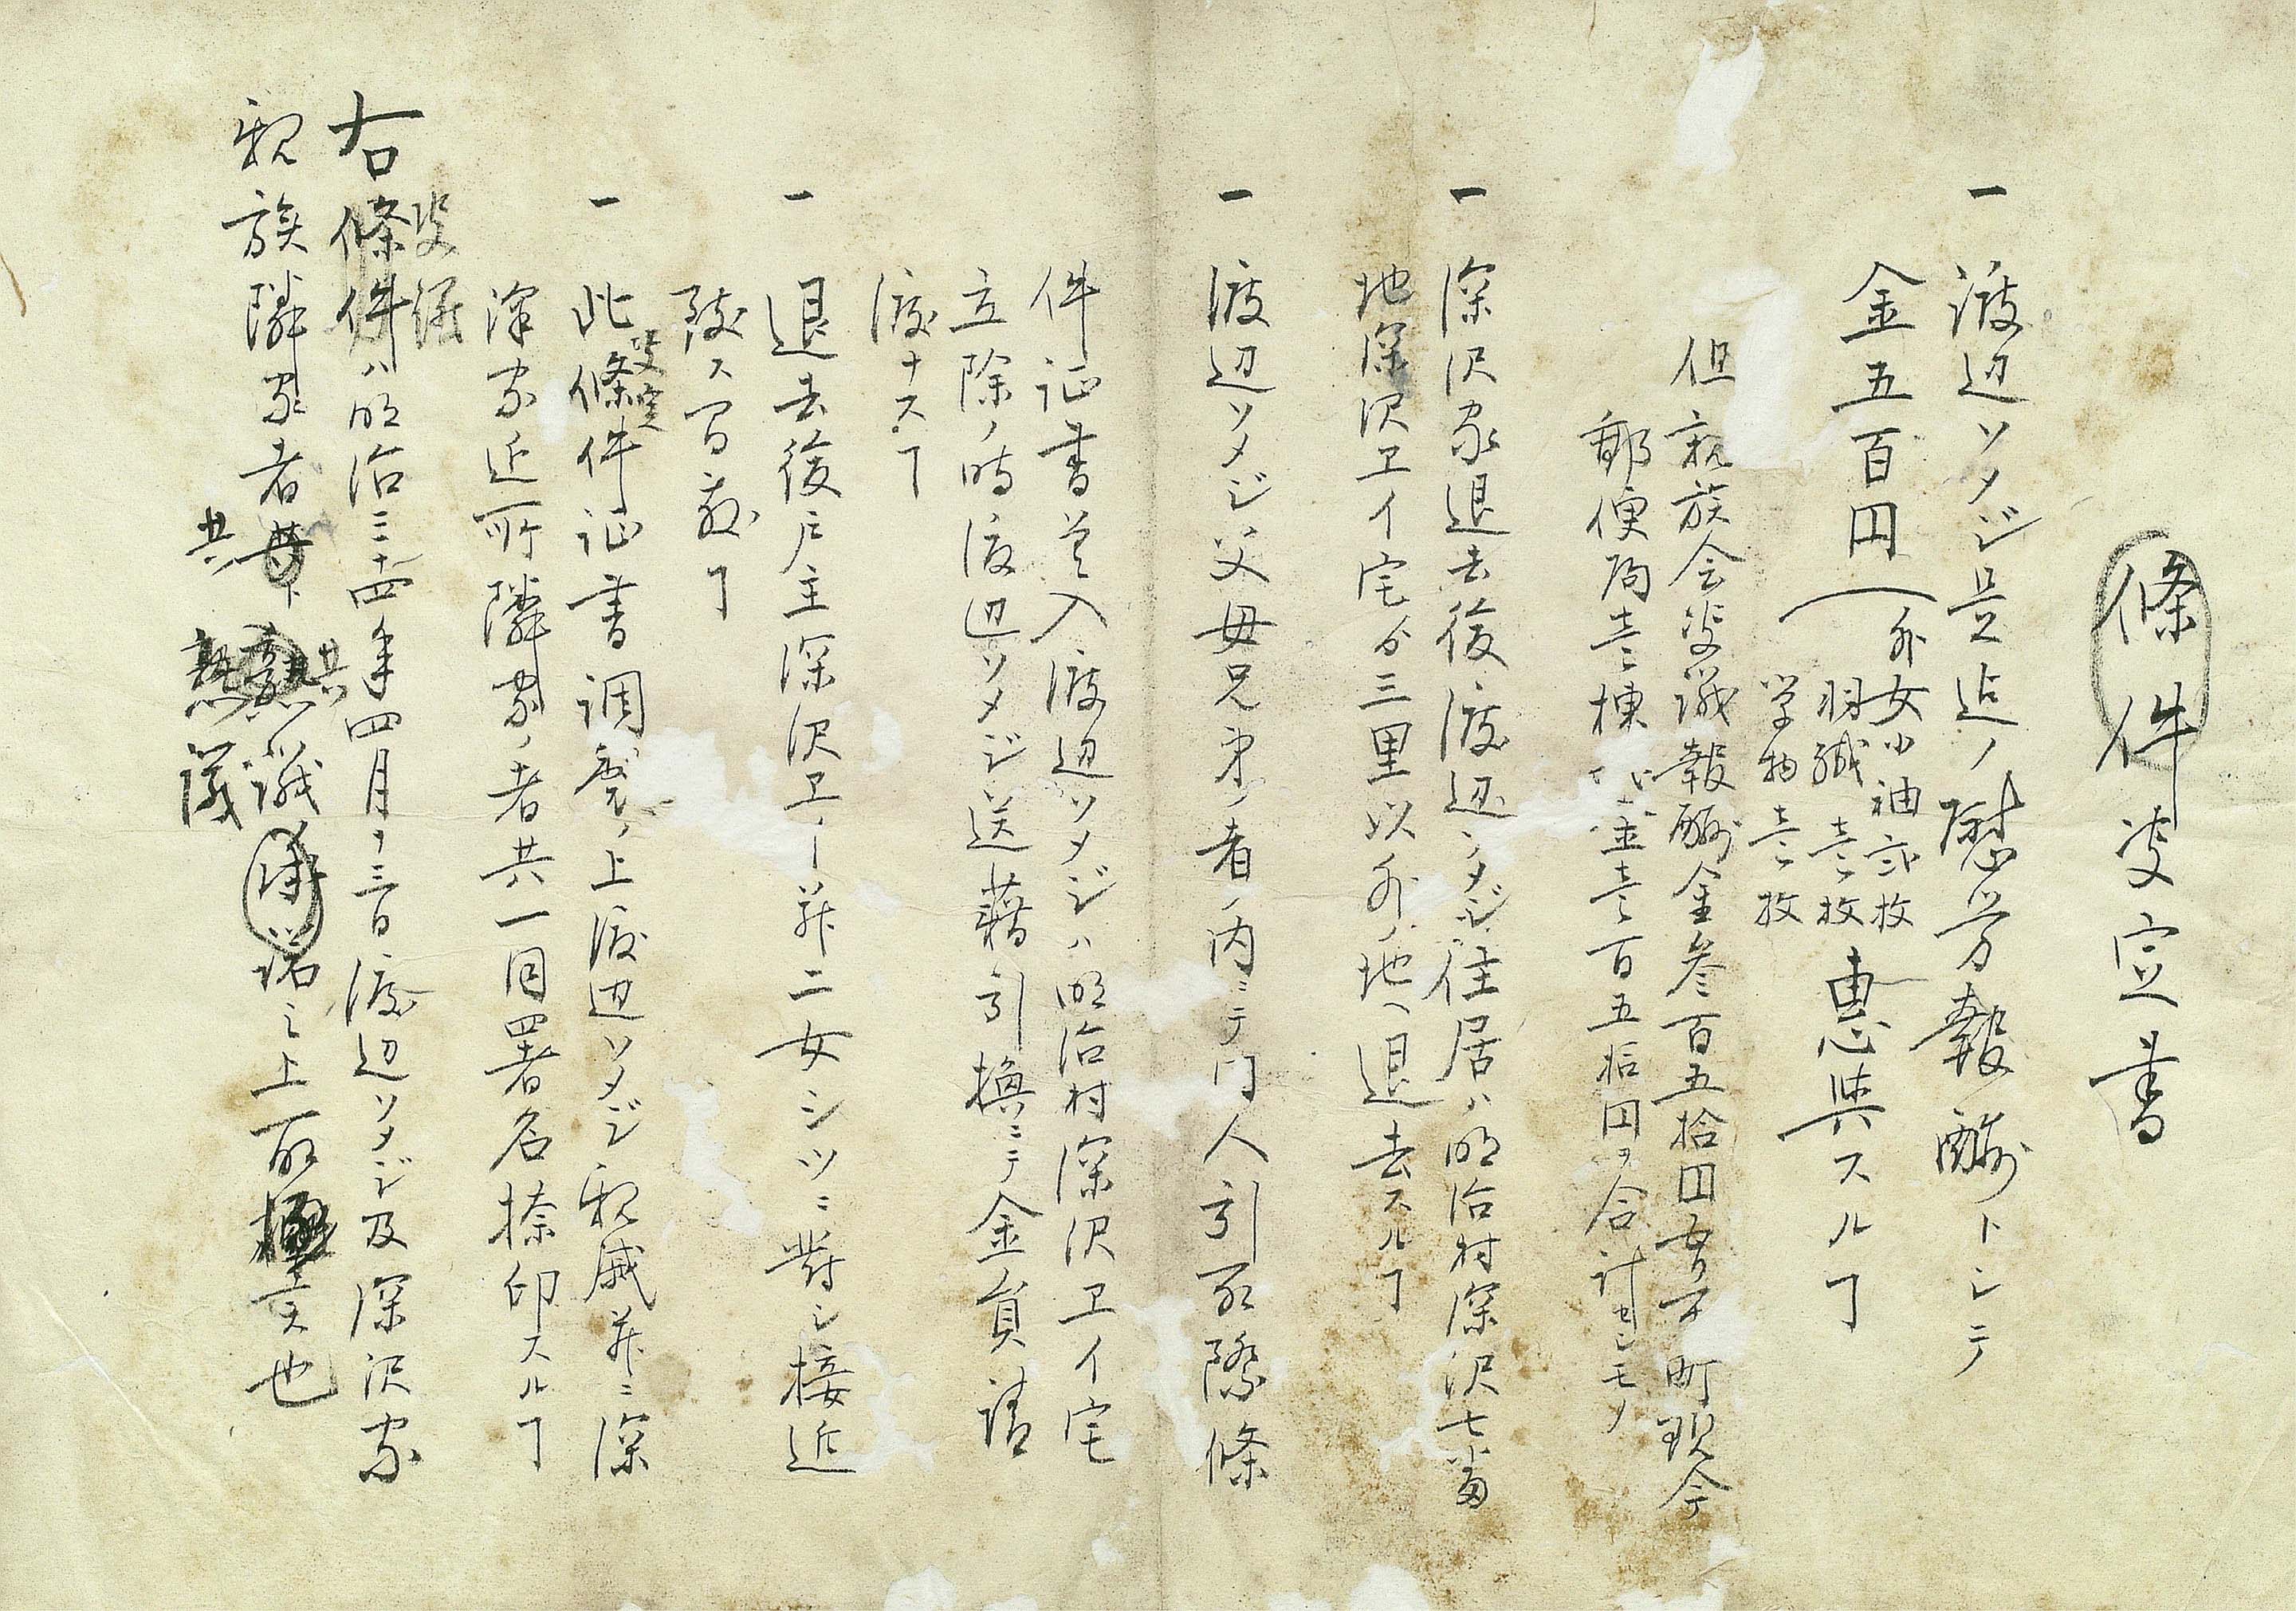 條件決定書
一 渡辺ソメジ是迄ノ慰労報酬トシテ
金五百円
外女小袖弐枚
羽織壱枚
単物壱枚
恵與スルヿ
但親族会決議報酬金参百五拾円 町現今
郵便局壱棟代金壱百五拾円ヲ合計セシモノ
一 深沢家退去後渡辺ソメジ住居ハ明治村深沢七番
地深沢エイ宅ゟ三里以外ノ地ヘ退去スルヿ
一 渡辺ソメジ父母兄弟ノ者ノ内ニテ門人引取際條
件証書差入渡辺ソメジハ明治村深沢エイ宅
立除ノ時渡辺ソメジ送藉引換ニテ金員請
渡ナスヿ
一 退去後戸主深沢エイ并二女シツニ對シ接近
致ス間敷ヿ
一 此決定條件証書調製ノ上渡辺ソメジ親戚并ニ深
深家近所隣家ノ者共一同署名捺印スルヿ
決議
右條件ハ明治三十四年四月十三日渡辺ソメジ及深沢家
親族隣家者共熟議 諾之上取極実也
共
共
熟議